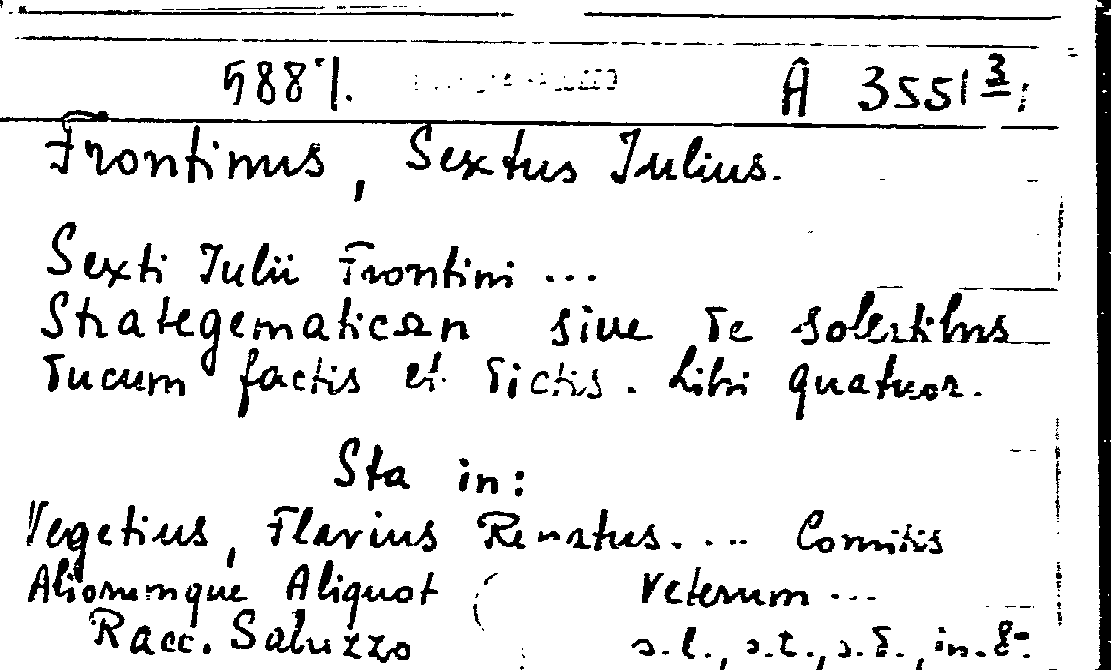 5887. A 3551 3;
Frontinus, Sextus Iulius.
Sexti Iulii Frontini ...
Strategematicωn sive de solertibus
ducum factis et dictis. Libri quatuor.
Sta in:
Vegetius, Flavius Renatus.... Comitis
Aliorumque Aliquot Veterum ...
Racc. Saluzzo s.l., s.t., s.d., in-8-.